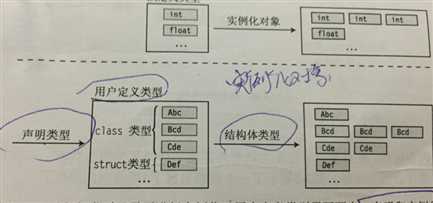 int
float
...
实例化对象
int int int
float
...
实例化对象
用户定义类型
声明类型
class 类型
Abc
Bcd
Cde
struct类型
Def
...
结构体类型
Abc
Bcd Bcd Bcd
Cde Cde
Def
...